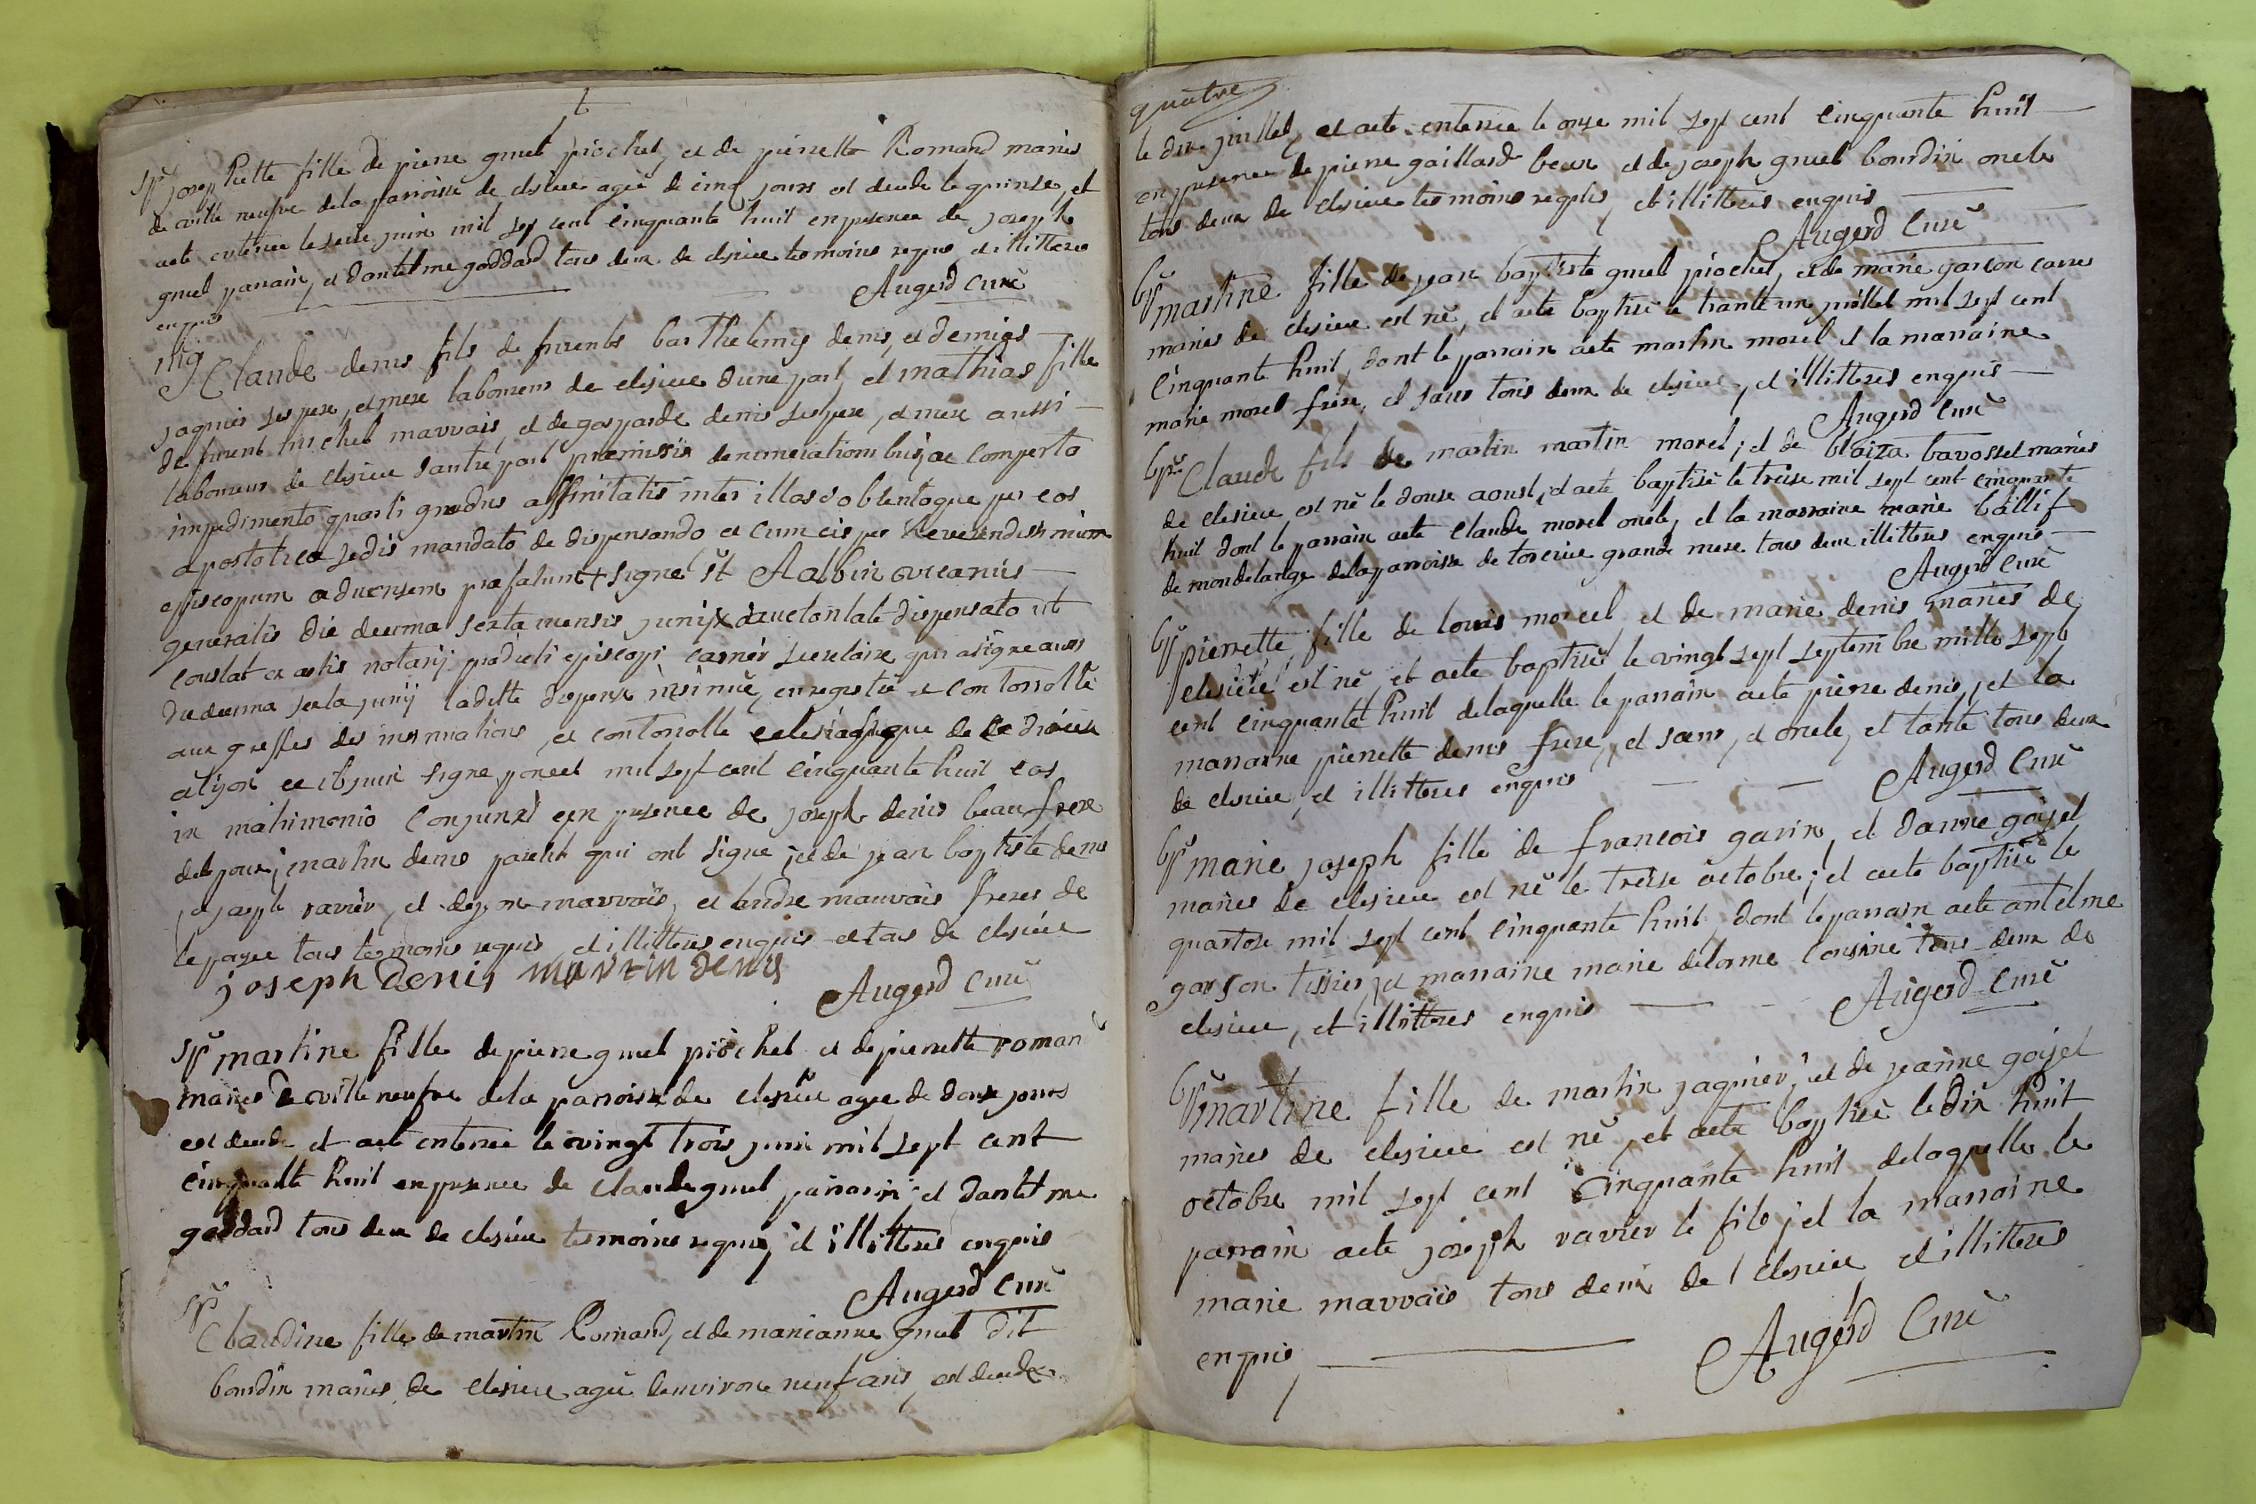 t
Spre josephette fille de pierre gruel piochet, et de pierrette Romand mariés
de ville neufve de la parroisse de clesieu agée de cinq jours est decede le quinse, et
aeté enterrée le seise juin mil sep cent cinquante huit en presence de joseph
gruel parrain, et dantelme goddard tous deux de clesieu temoins requis, et illitteres
enquis Augerd Curé
mg Claude denis fils de furent barthelemy denis, et demiges
jaquier ses pere, et mere laboureurs de clesieu dune part, et mathias fille
de furent michel mauvais, et de gasparde denis ses pere, et mere aussi
laboureurs de clesieu dautre part premissis denunciationibus, ac comperto
impedimento quarti gradus affinitatis inter illos, obtentoque per eos
apostolica sedis mandato de dispensando et cum eis per Reverendissimum
episcopum aduensem prefatum + signé St Aalbin vicarius
generalis die decima sexta mensis junij auctoritate dispensato ut
constat ex actis notarij predicti episcopi carrier secretaire qui a signe avec
die decima sexta junij ladite dispense insinuée, enregistrée et controllée
aux greffes des insinuations, et controlle eclesiastique de ce diocese
a lyon ce juin signe poncet mil sept cent cinquante huit eos
in matrimonio conjunxi, en presence de joseph denis beau frere
delepoux, martin denis parent qui ont signe, et de jean baptiste denis
joseph ravier, et de mauvais, et andre mauvais freres de
lepouse tous temoins requis, et illitteres enquis et tous de clesieu
joseph Denis martin denis
Augerd Curé
Spre martine fille de pierre gruel piochet et de pierrette roman
mariés de ville neufve de la parroisse de clesieu agee de douse jours
est decede et aeté enterrée le vingt trois juin mil sept cent
cinquante huit en presence de claude gruel parrain, et dantelme
goddard tous deux de clesieu temoins requis, et illitteres enquis
Augerd Curé
Spre
Claudine fille de martin Romand, et de marianne gruel dit
bourdin mariés de clesieu agée denviron neuf ans, est decede
quatre
le dix juillet, et aeté enterrée le onse mil sept cent cinquante huit
en presence de pierre gaillard beux et de joseph gruel bourdin oncle
tous deux de clesieu temoins requis, et illitteres enquis
Augerd Curé
bpt martine fille de jean baptiste gruel piochet, et de marie garson carre
mariés de clesieu est né, et aeté baptisé le trante un juillet mil sept cent
cinquante huit, dont le parrain aeté martin morel et la marraine
marie morel frere, et sœur tous deux de clesieu, et illitteres enquis
Augerd Curé
bpt Claude fils de martin martin morel, et de blaiza bavosset mariés
de clesieu est né le douse aoust, et aeté baptisé le treise mil sept cent cinquante
huit dont le parrain aeté claude morel oncle, et la marraine marie ballif
de mondelange de la parroisse de torcieu grande mere tous deux illitteres enquis
Augerd Curé
bpt pierrette fille de louis morcel et de marie denis mariés de
clesieu est né et aeté baptisé le vingt sept septembre mille sept
cent cinquante huit de laquelle le parrain aeté pierre denis, et la
marraine pierrette denis frere, et sœur, et oncle, et tante tous deux
de clesieu, et illitteres enquis
Augerd Curé
bpt marie joseph fille de francois garin, et danne goyet
mariés de clesieu est né le treise octobre, et aeté baptisé le
quartose mil sept cent cinquante huit, dont le parrain aeté antelme
garson tissier, et marraine marie delorme cousine tous deux de
clesieu, et illitteres enquis
Augerd Curé
bpt martine fille de martin jaquier, et de jeanne goyet
mariés de clesieu est né, et aeté baptisé le dix huit
octobre mil sept cent cinquante huit de laquelle le
parrain aeté joseph ravier le fils, et la marraine
marie mauvais tous deux de clesieu, et illitteres
enquis
Augerd Curé